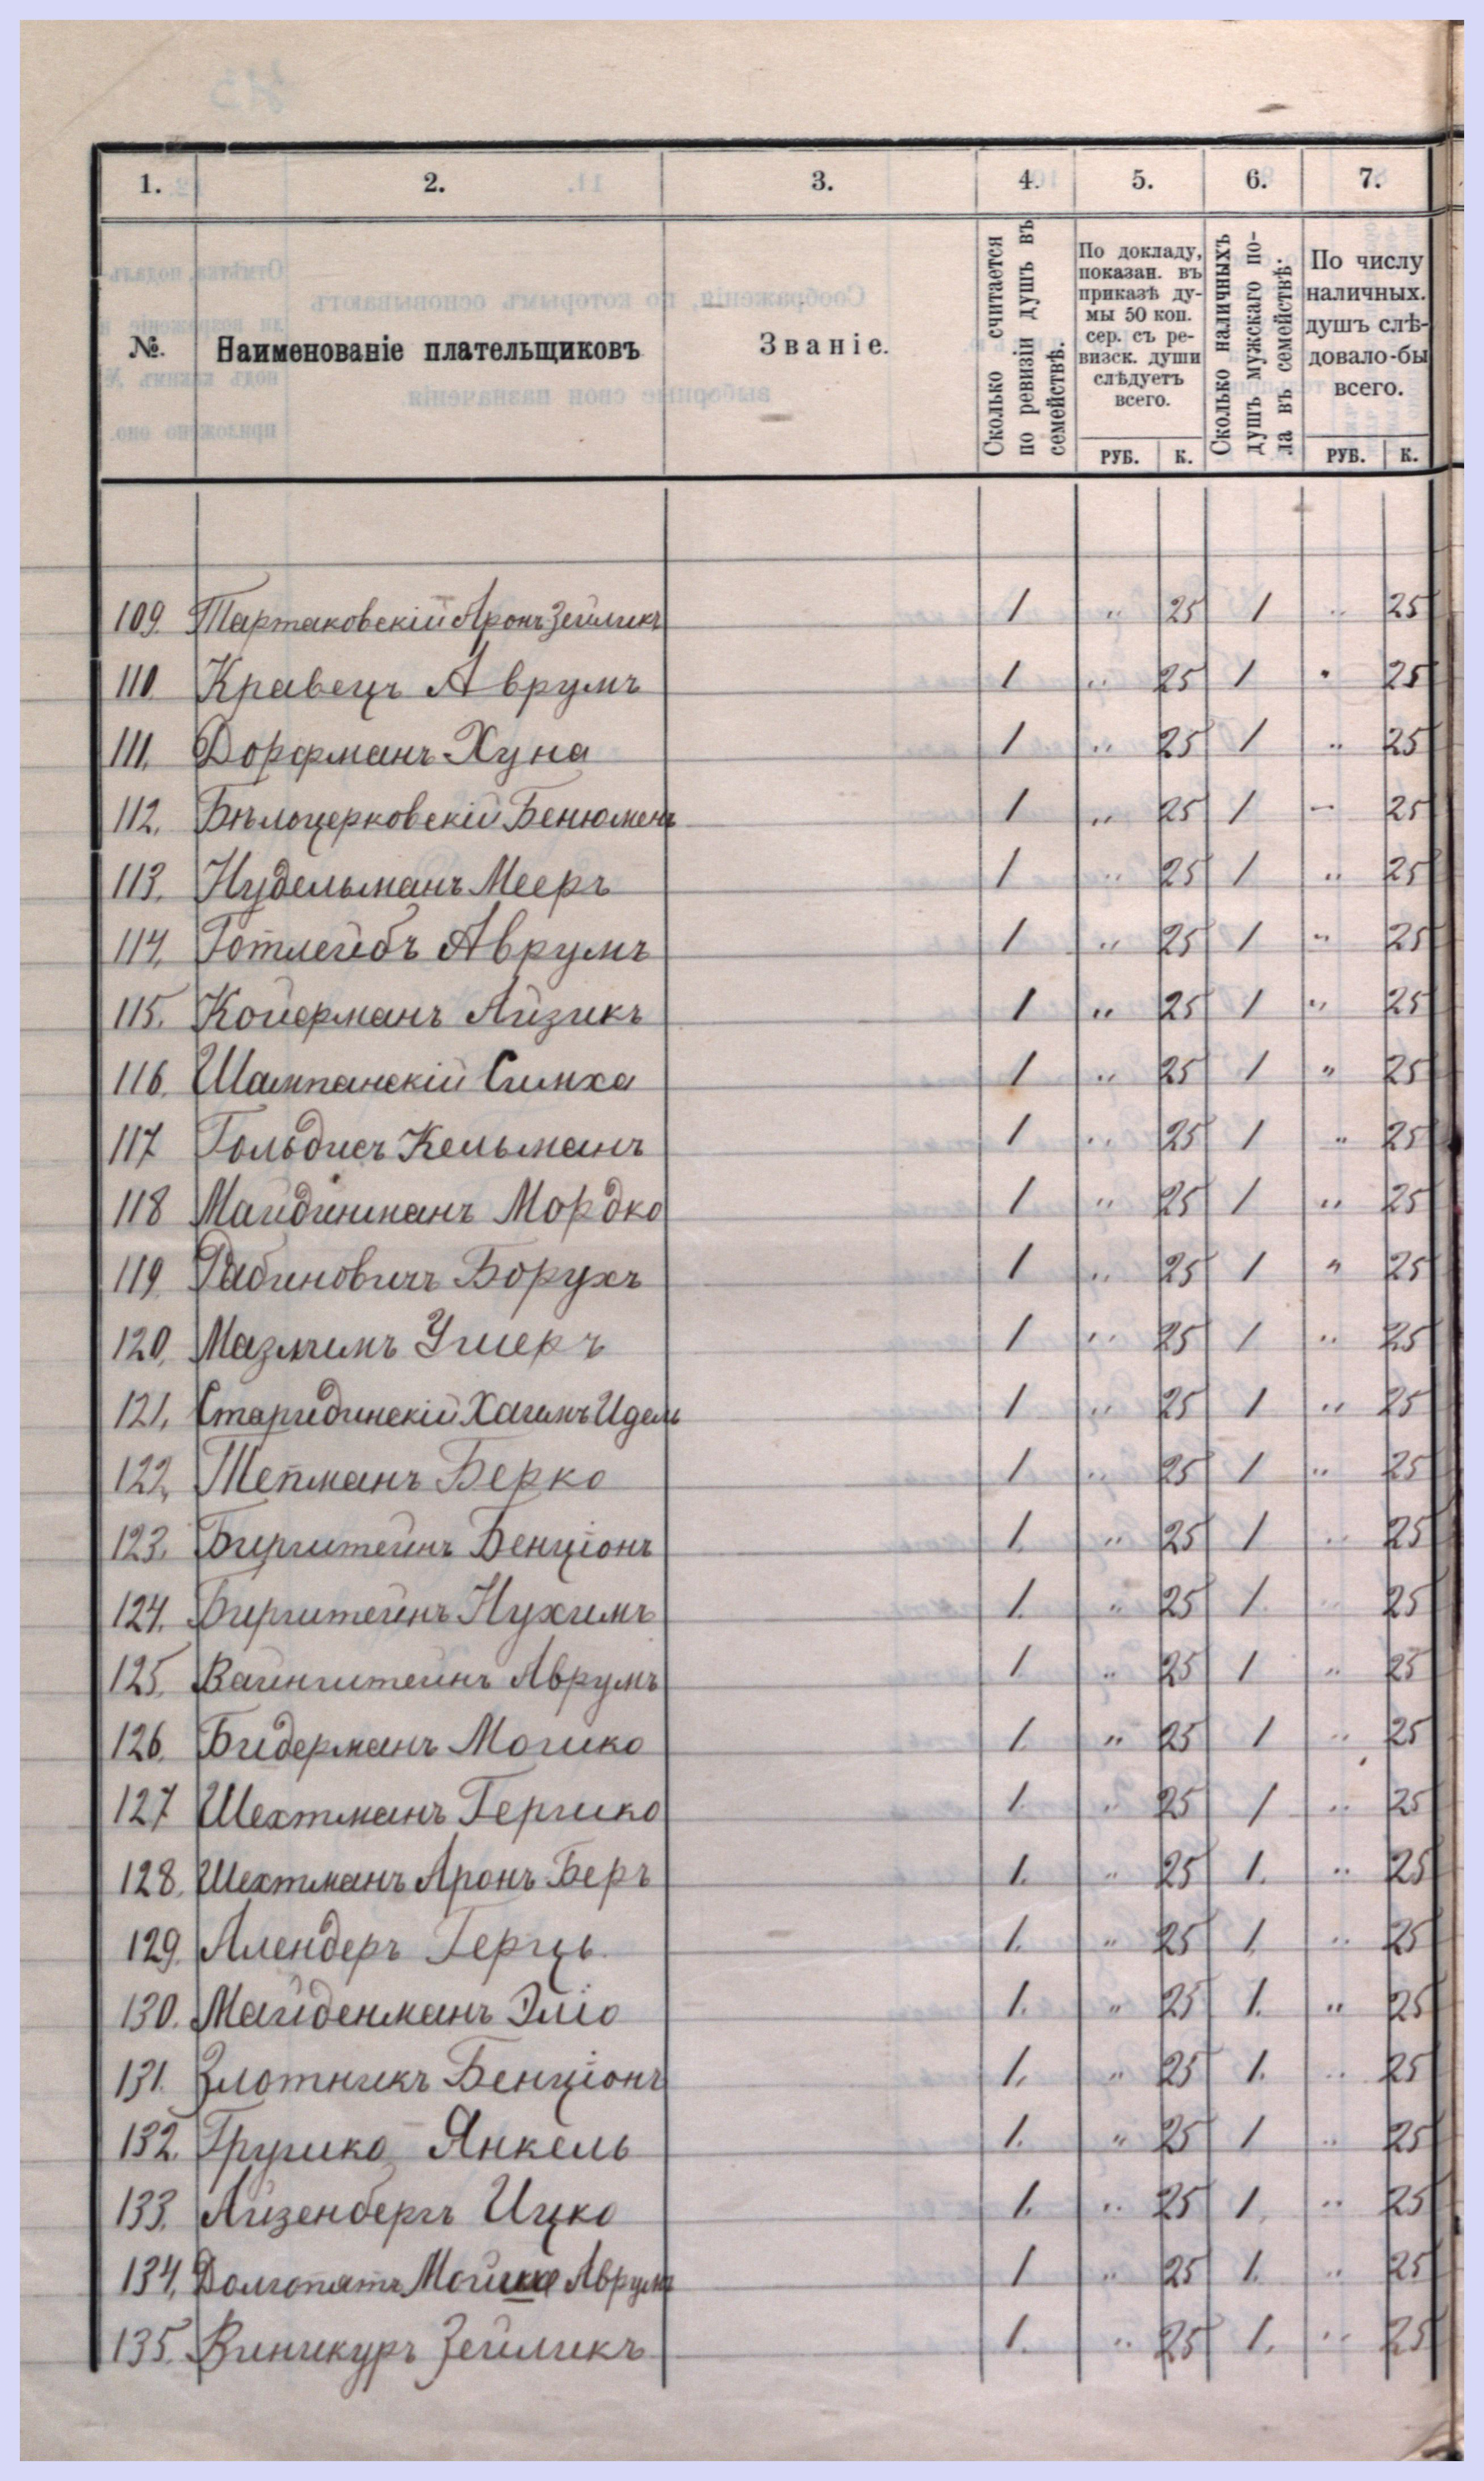 1. 2. 3. 4. 5. 6. 7.
№. Наименованіе плательщиковъ Званіе. Сколько считается по ревизіи душъ въ семействѣ. По докладу, показан. въ приказѣ думы 50 коп. сер. съ ревизск. души слѣдуетъ всего. Сколько наличныхъ душъ мужскаго пола въ семействѣ. По числу наличныхъ. душъ слѣдовало-бы всего.
РУБ. К. РУБ. К.
109. Тартаковскій Аронъ Зейликъ 1 " 25 1 " 25
110. Кравецъ Аврумъ 1 " 25 1 " 25
111. Дорфманъ Хуна 1 " 25 1 " 25
112. Бѣлоцерковскій Бенюменъ 1 " 25 1 " 25
113. Нудельманъ Мееръ 1 " 25 1 " 25
114. Готлейбъ Аврумъ 1 " 25 1 " 25
115. Койерманъ Айзикъ 1 " 25 1 " 25
116. Шампанскій Симха 1 " 25 1 " 25
117 Гольдисъ Кельманъ 1 " 25 1 " 25
118 Майдинманъ Мордко 1 " 25 1 " 25
119. Рабиновичъ Борухъ 1 " 25 1 " 25
120. Ушеръ 1 " 25 1 " 25
121. Хаимъ Идель 1 " 25 1 " 25
122. Тепманъ Берко 1 " 25 1 " 25
123. Биргштейнъ Бенціонъ 1. " 25 1 " 25
124. Биргштейнъ Нухимъ 1. " 25 1. " 25
125. Вайнштейнъ Аврумъ 1 " 25 1 " 25
126. Бидерманъ Мошко 1. " 25 1 " 25
127 Шехтманъ Гершко 1. " 25 1 " 25
128. Шехтманъ Аронъ Беръ 1. " 25 1. " 25
129. Алендеръ Герць 1. " 25 1. " 25
130. Майденманъ Эліо 1. " 25 1. " 25
131. Злотникъ Бенціонъ 1. " 25 1. " 25
132. Грушко Янкель 1. " 25 1 " 25
133. Айзенбергъ Ицко 1. " 25 1. " 25
134. Долгопятъ Аврумъ 1 " 25 1. " 25
135. Виникуръ Зейликъ 1. " 25 1. " 25